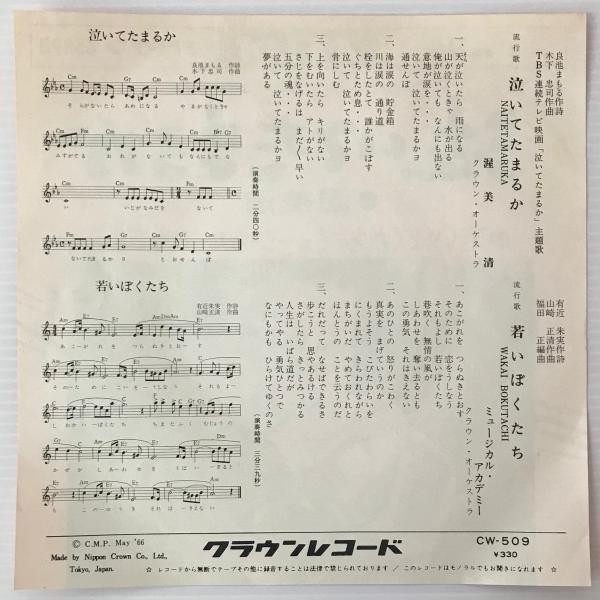 泣いてたまるか
良池まもる 作詩
木下忠司 作曲
良池まもる作詩
木下忠司作曲
TBS連続テレビ映画「泣いてたまるか」主題歌
流行歌 泣いてたまるか
NAITETAMARUKA
渥美 清
クラウン・オーケストラ
一、天が泣いたら 雨になる
山が泣くときゃ 水が出る
俺が泣いても なんにも出ない
意地が涙を・・・
泣いて 泣いてたまるかヨ
通せんぼ
二、海は涙の 貯金箱
川は涙の 通り道
栓をしたとて 誰かがこぼす
ぐちとため息・・・
泣いて 泣いてたまるかヨ
骨にしむ
三、上を向いたら キリがない
下をむいたら アトがない
さじをなげるは まだ〳〵早い
五分の魂・・・
泣いて 泣いてたまるかヨ
夢がある
(演奏時間 二分四〇秒)
若いぼくたち
有近朱実 作詩
山崎正清 作曲
有近 朱実作詩
山崎 正清作曲
福田 正編曲
流行歌 若いぼくたち
WAKAI BOKUTACHI
ミュージカル・アカデミー
クラウン・オーケストラ
一、あこがれを つらぬきとおす
そのために 恋をうしなう
それもよい 若いぼくたち
巷吹く 無情の風が
しあわせを 奪い去るとも
この勇気 それはきえない
二、あのひとの 怒りがこわく
真実を まげていいのか
もうよそう こびたわらいを
にくまれて きらわれながら
まちがいだ やめておくれと
ほんとうの ことを云うのだ
三、だれだって なせばできるさ
歩こうと 思やあるける
さがしたら きっとみつかる
人生は いばら道だが
やってやる 勇気ひとつで
なにもかも ひらけてゆくのさ
(演奏時間 三分三九秒)
© C.M.P. May '66
Made by Nippon Crown Co., Ltd.,
Tokyo, Japan.
クラウンレコード
CW-509
¥330
☆ レコードから無断でテープその他に録音することは法律で禁じられております / このレコードはモノラルでもお聞きになれます ☆